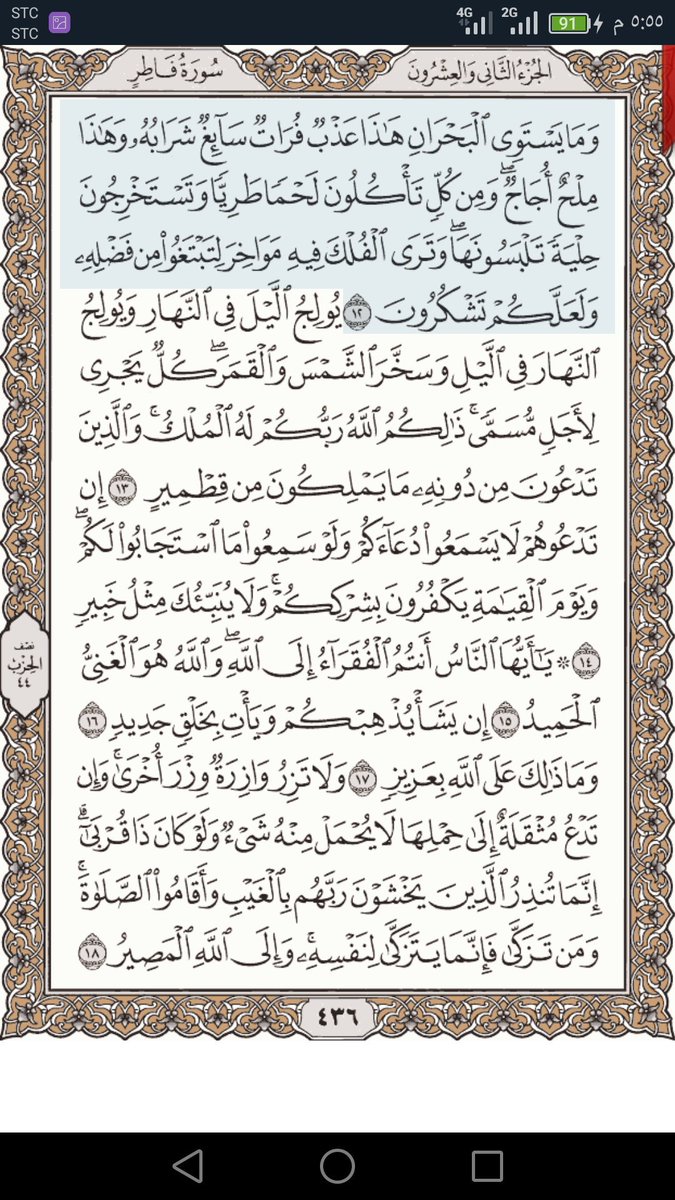 STC
STC
4G
2G
91
٥:٥٥ م
سُورَةُ فَاطِرٍ
الجُزْءُ الثَّانِي وَالعِشْرُونَ
وَمَا يَسْتَوِى ٱلْبَحْرَانِ هَٰذَا عَذْبٌ فُرَاتٌ سَآئِغٌ شَرَابُهُۥ وَهَٰذَا
مِلْحٌ أُجَاجٌۖ وَمِن كُلٍّ تَأْكُلُونَ لَحْمًا طَرِيًّا وَتَسْتَخْرِجُونَ
حِلْيَةً تَلْبَسُونَهَاۖ وَتَرَى ٱلْفُلْكَ فِيهِ مَوَاخِرَ لِتَبْتَغُوا۟ مِن فَضْلِهِۦ
وَلَعَلَّكُمْ تَشْكُرُونَ ١٢ يُولِجُ ٱلَّيْلَ فِى ٱلنَّهَارِ وَيُولِجُ
ٱلنَّهَارَ فِى ٱلَّيْلِ وَسَخَّرَ ٱلشَّمْسَ وَٱلْقَمَرَۖ كُلٌّ يَجْرِى
لِأَجَلٍ مُّسَمًّىۚ ذَٰلِكُمُ ٱللَّهُ رَبُّكُمْ لَهُ ٱلْمُلْكُۚ وَٱلَّذِينَ
تَدْعُونَ مِن دُونِهِۦ مَا يَمْلِكُونَ مِن قِطْمِيرٍ ١٣ إِن
تَدْعُوهُمْ لَا يَسْمَعُوا۟ دُعَآءَكُمْ وَلَوْ سَمِعُوا۟ مَا ٱسْتَجَابُوا۟ لَكُمْۖ
وَيَوْمَ ٱلْقِيَٰمَةِ يَكْفُرُونَ بِشِرْكِكُمْۚ وَلَا يُنَبِّئُكَ مِثْلُ خَبِيرٍ
١٤ ۞ يَٰٓأَيُّهَا ٱلنَّاسُ أَنتُمُ ٱلْفُقَرَآءُ إِلَى ٱللَّهِۖ وَٱللَّهُ هُوَ ٱلْغَنِىُّ
ٱلْحَمِيدُ ١٥ إِن يَشَأْ يُذْهِبْكُمْ وَيَأْتِ بِخَلْقٍ جَدِيدٍ ١٦
وَمَا ذَٰلِكَ عَلَى ٱللَّهِ بِعَزِيزٍ ١٧ وَلَا تَزِرُ وَازِرَةٌ وِزْرَ أُخْرَىٰۚ وَإِن
تَدْعُ مُثْقَلَةٌ إِلَىٰ حِمْلِهَا لَا يُحْمَلْ مِنْهُ شَىْءٌ وَلَوْ كَانَ ذَا قُرْبَىٰٓۗ
إِنَّمَا تُنذِرُ ٱلَّذِينَ يَخْشَوْنَ رَبَّهُم بِٱلْغَيْبِ وَأَقَامُوا۟ ٱلصَّلَوٰةَۚ
وَمَن تَزَكَّىٰ فَإِنَّمَا يَتَزَكَّىٰ لِنَفْسِهِۦۚ وَإِلَى ٱللَّهِ ٱلْمَصِيرُ ١٨
نصف
الحزب
٤٤
٤٣٦